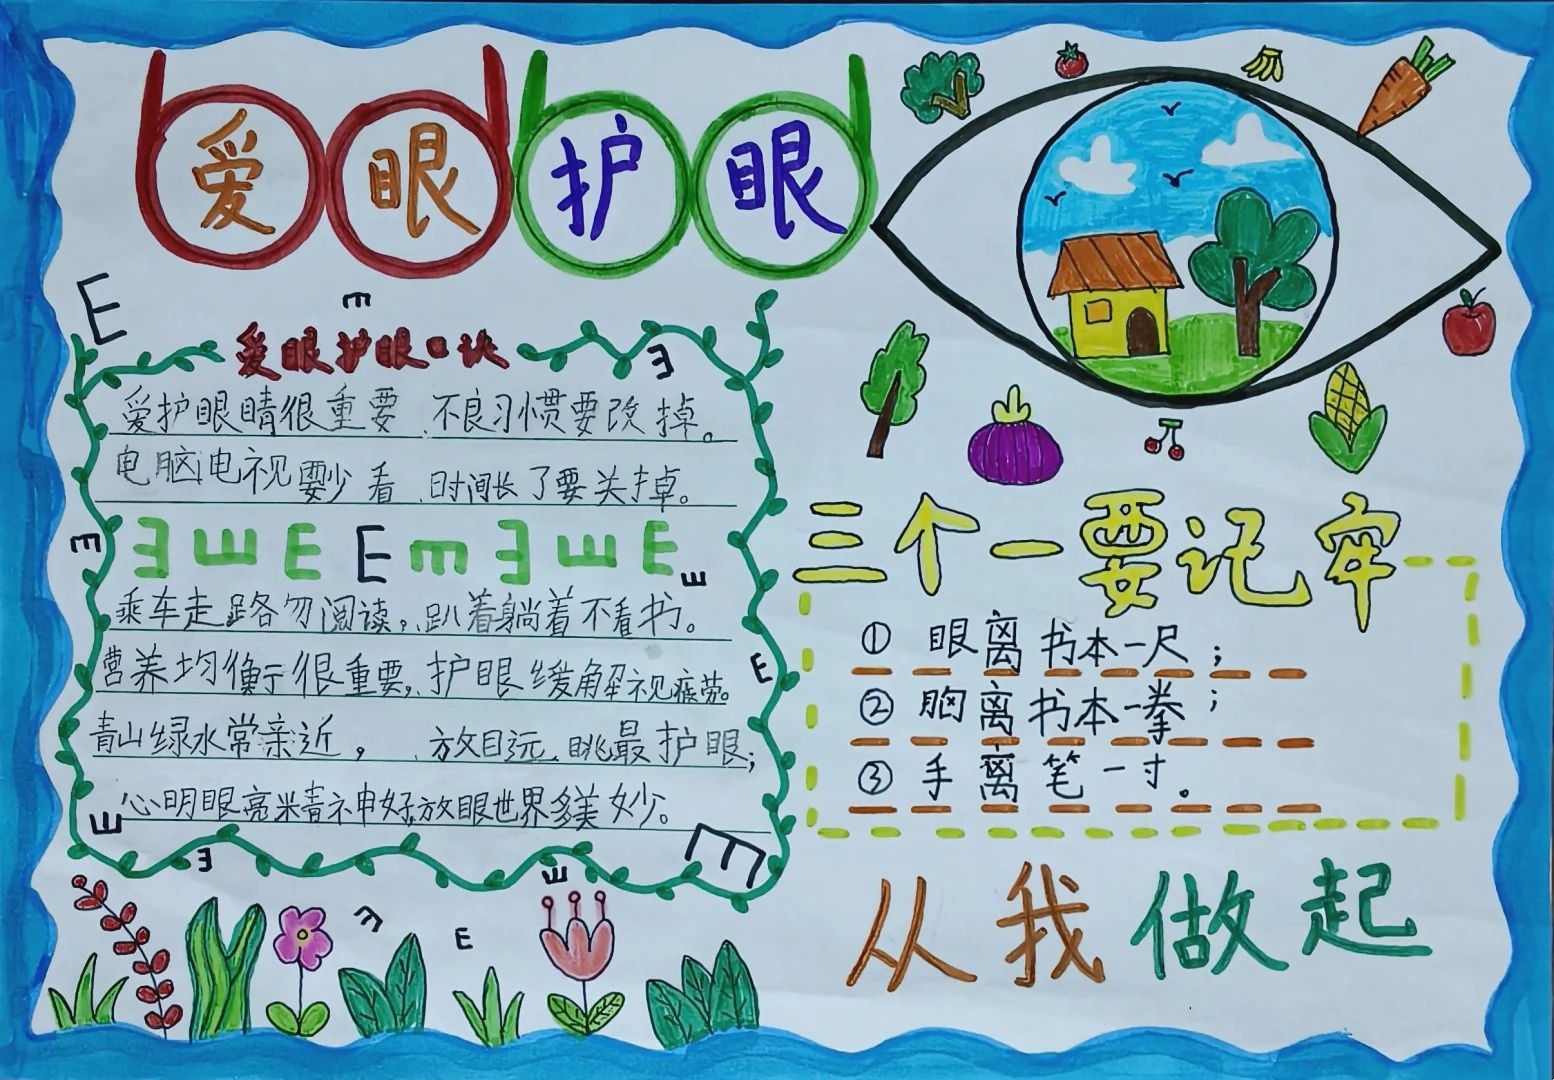 爱眼护眼
E
E
爱眼护眼口诀
E
爱护眼睛很重要、不良习惯要改掉。
电脑电视要少看、时间长了要关掉。
E E E E E E E E
E
E
乘车走路勿阅读,趴着躺着不看书。
营养均衡很重要,护眼缓解视疲劳。
E
青山绿水常亲近,放目远眺最护眼;
心明眼亮米青礻申好,放眼世界多美妙。
E
E
E
E
E
E
三个一要记牢
① 眼离书本一尺;
② 胸离书本一拳;
③ 手离笔一寸。
从我做起